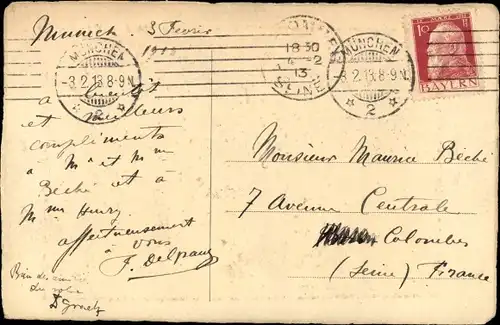 Munich 3 Février
1913
MÜNCHEN
-3.2.13.8-9N.
2
18 30
-2
13
SEINE
MÜNCHEN
-3.2.13.8-9N.
2
10
BAYERN
à
et meilleurs
compliments
à Mr et Mme
Béché et à
Mme Henry
affectueusement
à vous
F. Delpaux
Monsieur Maurice Béché
7 Avenue Centrale
Colombes
(Seine) France